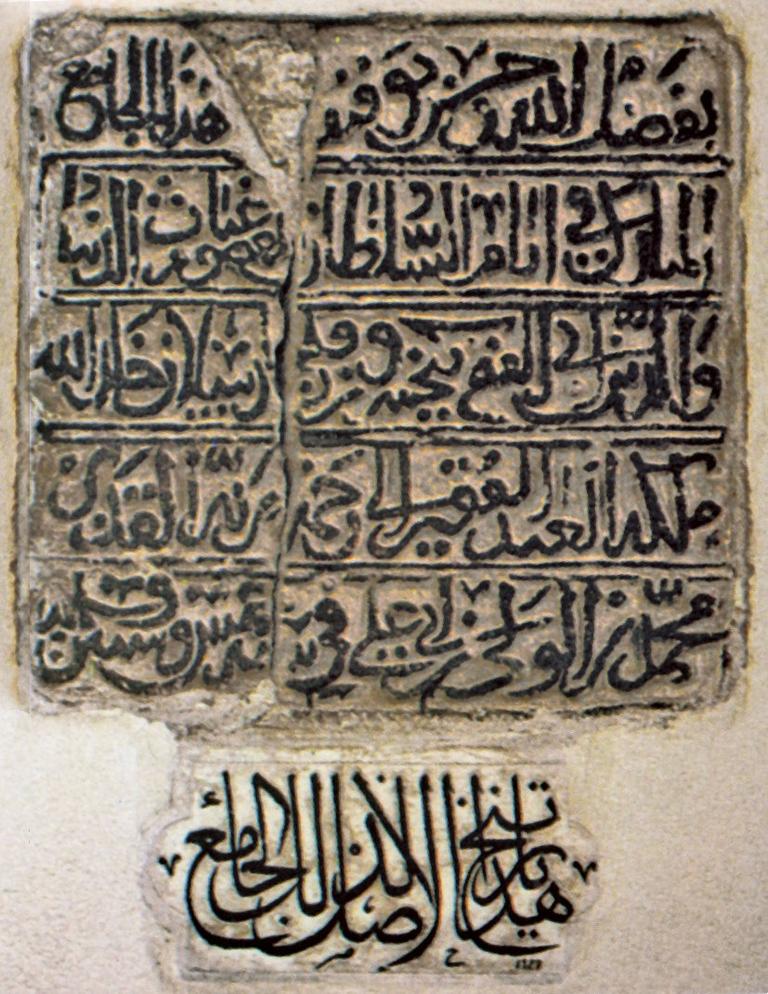 بفضل الله وحسن توفيقه هذا الجامع
المبارك في ايام السلطان غياث الدنيا
والدين ابي الفتح كيخسرو بن ارسلان خلد الله
ملكه العبد الفقير الى رحمة ربه القدير
محمد بن علي في خمس وستين
هذا تاريخ الاصل لذلك الجامع